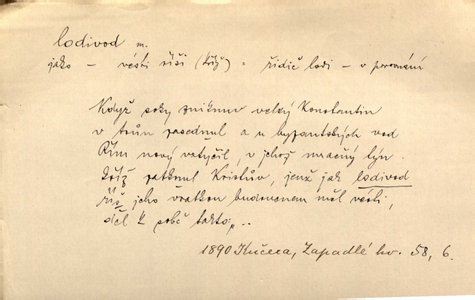 lodivod m.
jako – vésti říši (kříž) = řidič lodi – v porovnání
Když soky zniknuv velký Konstantin
v trůn zasednul a u byzantských vod
Řím nový vztyčil, v jehož mračný týn
kříž zatknul Kristův, jenž jak lodivod
říš jeho vratkou budoucnem měl vésti,
děl k sobě takto ..
1890 Kučera, Zapadlé hv. 58, 6.